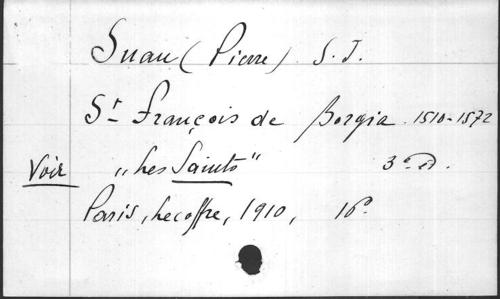 Suau (Pierre) S. J.
St François de Borgia. 1510-1572
Voir „Les Saints" 3e éd.
Paris, Lecoffre, 1910, 16°